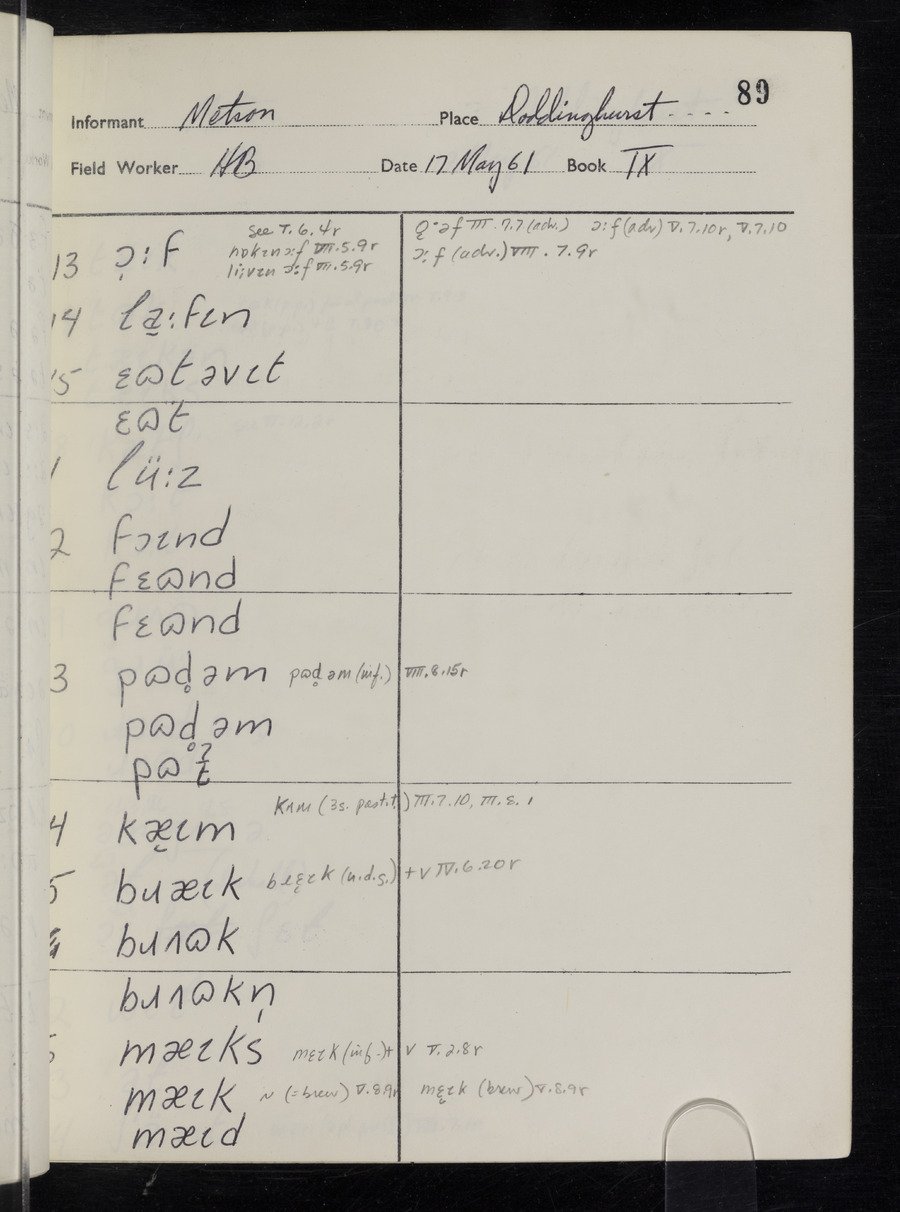 89
Informant Metson Place Doddinghurst
Field Worker HB Date 17 May 61 Book IX
13 ɔ̣:f see V.6.4r
nɒkɪnɔ:f VIII.5.9r
ɔ:f (adv) V.7.10r, V.7.10
ɔ:f (adv.) VIII.7.9r
14 la̱:fɪn
15 ɛɷt əvɪt
ɛɷt
1 lü:z
2 fɔɪnd
fɛɷnd
fɛɷnd
3 pɷd̥əm pɷd̥əm (inf.) VIII.8.15r
pɷd̥əm
4 kæ̨ɪm kʌm (3s. past.t.) III.7.10, III.8.1
5 bɹæɪk (n.d.g.) + v IV.6.20r
bɹʌɷk
bɹʌɷkn̩
mæɪks mɛ̨ɪk (inf.) + v V.2.8r
mæɪk ~ (=brew) V.8.9r mɛ̨ɪk (brew) V.8.9r
mæɪd